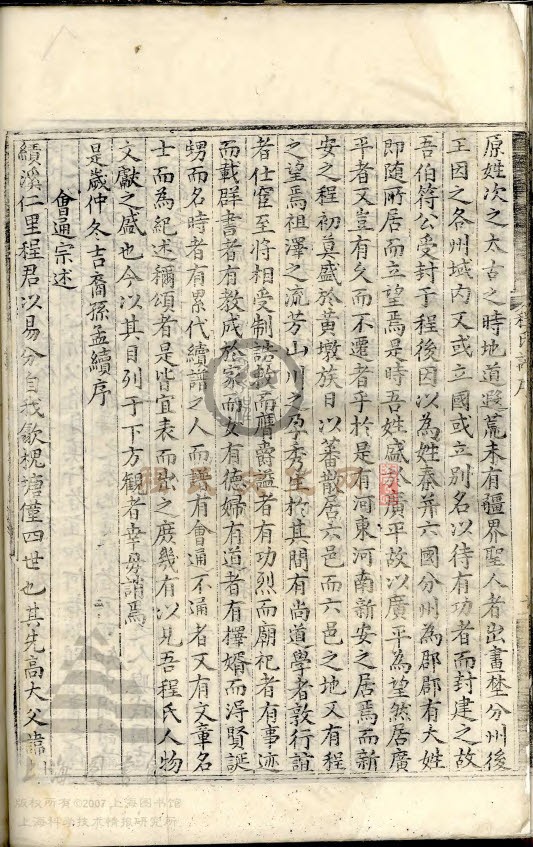 原姓次之太古之時地道遐荒未有疆界聖人者出畫埜分州後
王因之各州域內又或立國或立別名以待有功者而封建之故
吾伯符公受封于程後因以為姓秦并六國分州為郡郡有大姓
即随所居而立望焉是時吾姓盛於廣平故以廣平為望然居廣
平者又豈有久而不遷者乎於是有河東河南新安之居焉而新
安之程初莫盛於黃墩族日以蕃散居六邑而六邑之地又有程
之望焉祖澤之流芳山川之孕秀生於其間有尚道學者敦行誼
者仕宦至將相受制誥敕而膺爵謚者有功烈而廟祀者有事迹
而載群書者有教成於家而女有德婦有道者有擇婿而淂賢誕
甥而名時者有累代續譜之人而譜有會通不通者又有文章名
士而為紀述稱頌者是皆宜表而出之庶幾有以見吾程氏人物
文獻之盛也今以其目列于下方觀者幸員誚焉
是歲仲冬吉裔孫孟續序
會通宗述
績溪仁里程君以易分自我歙槐塘僅四世也其先高大父諱
程氏譜序
版权所有©2007 上海图书馆
上海科学技术情报研究所